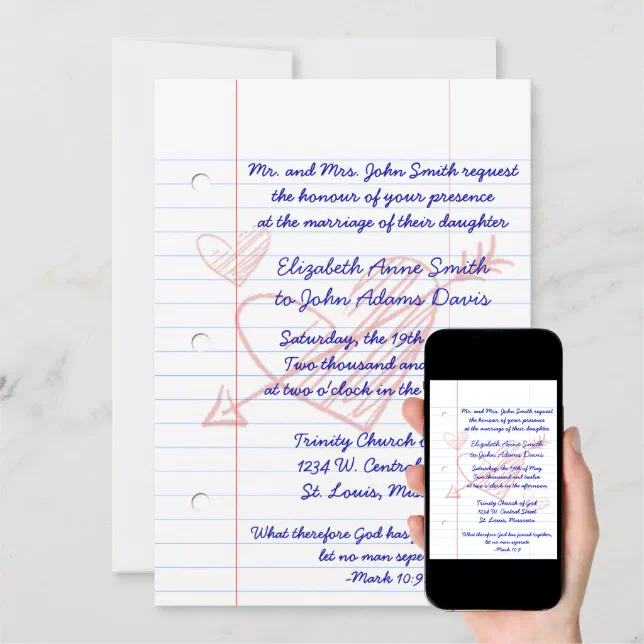 Mr. and Mrs. John Smith request
the honour of your presence
at the marriage of their daughter
Elizabeth Anne Smith
to John Adams Davis
Saturday, the 19th
Two thousand and
at two o'clock in the
Trinity Church
1234 W. Central
St. Louis,
What therefore God has
let no man
-Mark 10:9
Mr. and Mrs. John Smith request
the honour of your presence
at the marriage of their daughter
Elizabeth Anne Smith
to John Adams Davis
Saturday, the 19th of May
Two thousand and twelve
at two o'clock in the afternoon
Trinity Church of God
1234 W. Central Street
St. Louis, Missouri
What therefore God has joined together,
let no man seperate
-Mark 10:9